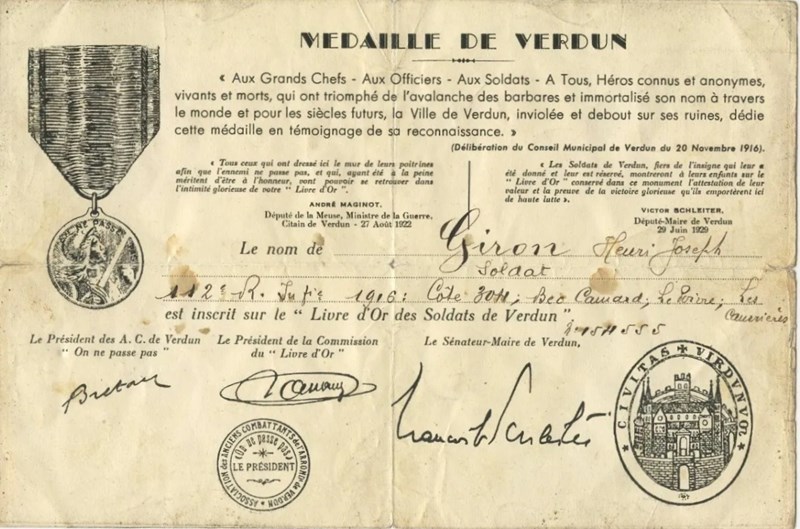 MEDAILLE DE VERDUN
« Aux Grands Chefs - Aux Officiers - Aux Soldats - A Tous, Héros connus et anonymes,
vivants et morts, qui ont triomphé de l'avalanche des barbares et immortalisé son nom à travers
le monde et pour les siècles futurs, la Ville de Verdun, inviolée et debout sur ses ruines, dédie
cette médaille en témoignage de sa reconnaissance. »
(Délibération du Conseil Municipal de Verdun du 20 Novembre 1916).
« Tous ceux qui ont dressé ici le mur de leurs poitrines
afin que l'ennemi ne passe pas, et qui, ayant été à la peine
méritent d'être à l'honneur, vont pouvoir se retrouver dans
l'intimité glorieuse de votre " Livre d'Or ".
ANDRÉ MAGINOT,
Député de la Meuse, Ministre de la Guerre,
Citain de Verdun - 27 Août 1922
« Les Soldats de Verdun, fiers de l'insigne qui leur «
été donné et leur est réservé, montreront à leurs enfants sur le
" Livre d'Or " conservé dans ce monument l'attestation de leur
valeur et la preuve de la victoire glorieuse qu'ils emportèrent ici
de haute lutte ».
VICTOR SCHLEITER,
Député-Maire de Verdun
29 Juin 1929
ON NE PASSE PAS
Le nom de Giron Henri Joseph
Soldat
112e R. Infie 1916: Côte 304; Bec Camard;
est inscrit sur le " Livre d'Or des Soldats de Verdun ".
Le Président des A. C. de Verdun
" On ne passe pas "
Le Président de la Commission
du " Livre d'Or "
Le Sénateur-Maire de Verdun,
ASSOCIATION des ANCIENS COMBATTANTS de l'ARROND. de VERDUN
"On ne passe pas"
LE PRÉSIDENT
CIVITAS VIRDVNVM